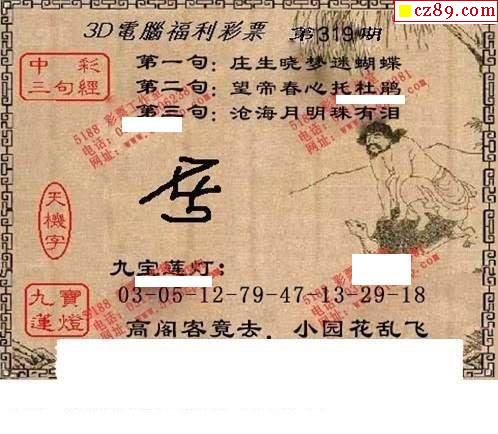 cz89.com
3D電腦福利彩票 第319期
中彩
三句經
第一句：庄生晓梦迷蝴蝶
第二句：望帝春心托杜鹃
第三句：沧海月明珠有泪
天機字
九宝莲灯：
九寶
蓮燈
03-05-12-79-47-13-29-18
高阁客竟去，小园花乱飞